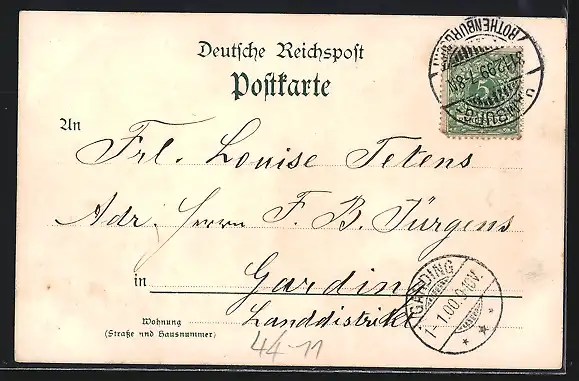 Deutsche Reichspost
Postkarte
ROTHENBURGSORT
31.12.99.7-8N.
5
An
Frl. Louise Tetens
Adr. Herrn F. B. Jürgens
in Garding
GARDING
1-1.00.9-10V.
Wohnung
(Straße und Hausnummer)
Landdistrikt
44-11